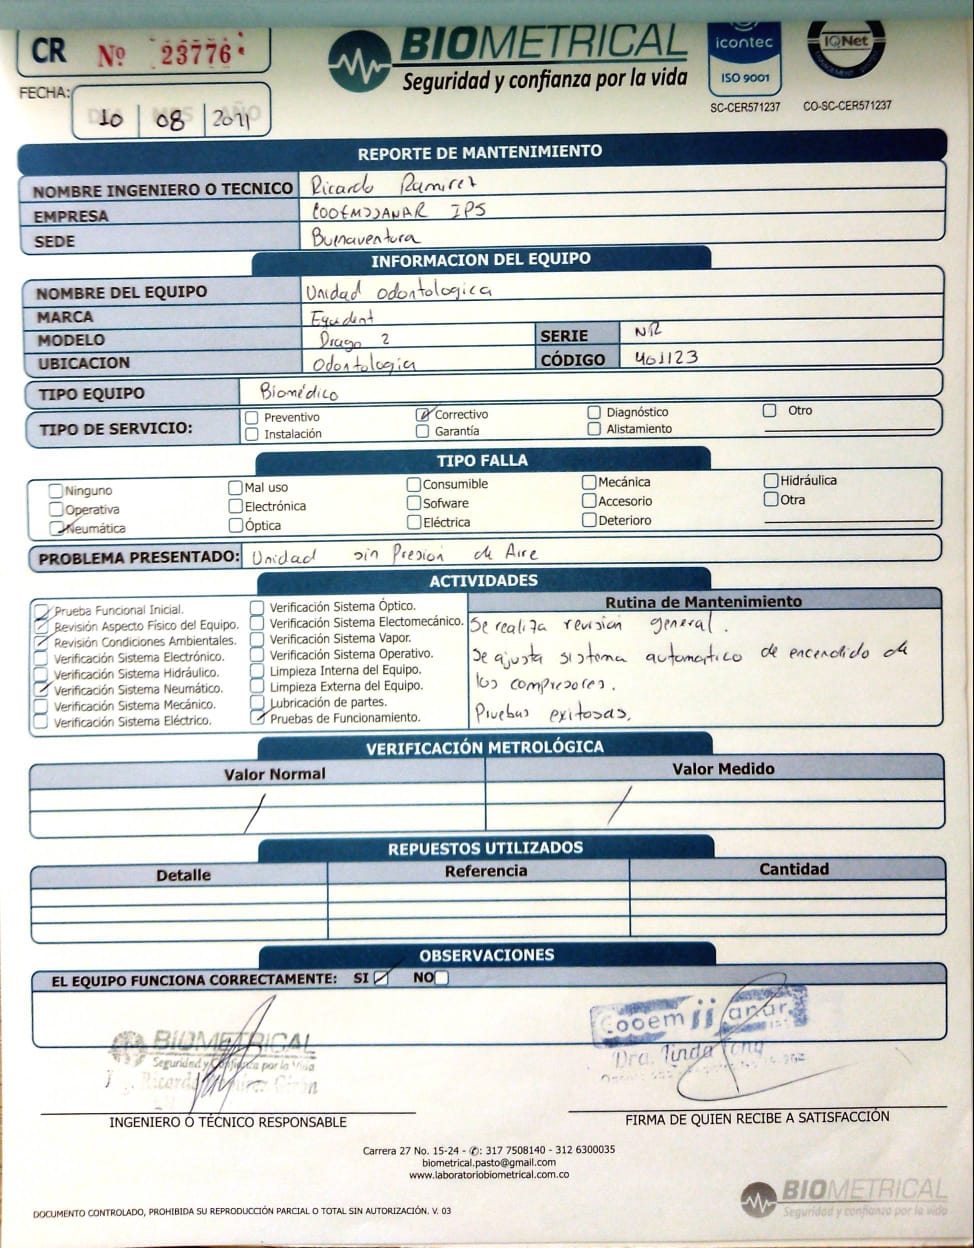 CR Nº 23776
BIOMETRICAL
Seguridad y confianza por la vida
icontec
ISO 9001
SC-CER571237
IQNet
CO-SC-CER571237
FECHA:
DIA MES AÑO
10 08 2021
REPORTE DE MANTENIMIENTO
NOMBRE INGENIERO O TECNICO Ricardo Ramirez
EMPRESA COOEMJJANAR IPS
SEDE Buenaventura
INFORMACION DEL EQUIPO
NOMBRE DEL EQUIPO Unidad odontologica
MARCA Equdent
MODELO Drago 2 SERIE NR
UBICACION Odontologia CÓDIGO 401123
TIPO EQUIPO Biomédico
TIPO DE SERVICIO: Preventivo Correctivo Diagnóstico Otro
Instalación Garantía Alistamiento
TIPO FALLA
Ninguno Mal uso Consumible Mecánica Hidráulica
Operativa Electrónica Sofware Accesorio Otra
Neumática Óptica Eléctrica Deterioro
PROBLEMA PRESENTADO: Unidad sin Presion de Aire
ACTIVIDADES
Prueba Funcional Inicial.
Revisión Aspecto Físico del Equipo.
Revisión Condiciones Ambientales.
Verificación Sistema Electrónico.
Verificación Sistema Hidráulico.
Verificación Sistema Neumático.
Verificación Sistema Mecánico.
Verificación Sistema Eléctrico.
Verificación Sistema Óptico.
Verificación Sistema Electomecánico.
Verificación Sistema Vapor.
Verificación Sistema Operativo.
Limpieza Interna del Equipo.
Limpieza Externa del Equipo.
Lubricación de partes.
Pruebas de Funcionamiento.
Rutina de Mantenimiento
Se realiza revision general.
Se ajusta sistema automatico de encendido de
los compresores.
Pruebas exitosas.
VERIFICACIÓN METROLÓGICA
Valor Normal Valor Medido
/ /
REPUESTOS UTILIZADOS
Detalle Referencia Cantidad
OBSERVACIONES
EL EQUIPO FUNCIONA CORRECTAMENTE: SI NO
BIOMETRICAL
Seguridad y Confianza por la Vida
Ricardo
Cooemjjanar
Dra. Linda
INGENIERO O TÉCNICO RESPONSABLE
FIRMA DE QUIEN RECIBE A SATISFACCIÓN
Carrera 27 No. 15-24 - ✆: 317 7508140 - 312 6300035
biometrical.pasto@gmail.com
www.laboratoriobiometrical.com.co
DOCUMENTO CONTROLADO, PROHIBIDA SU REPRODUCCIÓN PARCIAL O TOTAL SIN AUTORIZACIÓN. V. 03
BIOMETRICAL
Seguridad y confianza por la vida